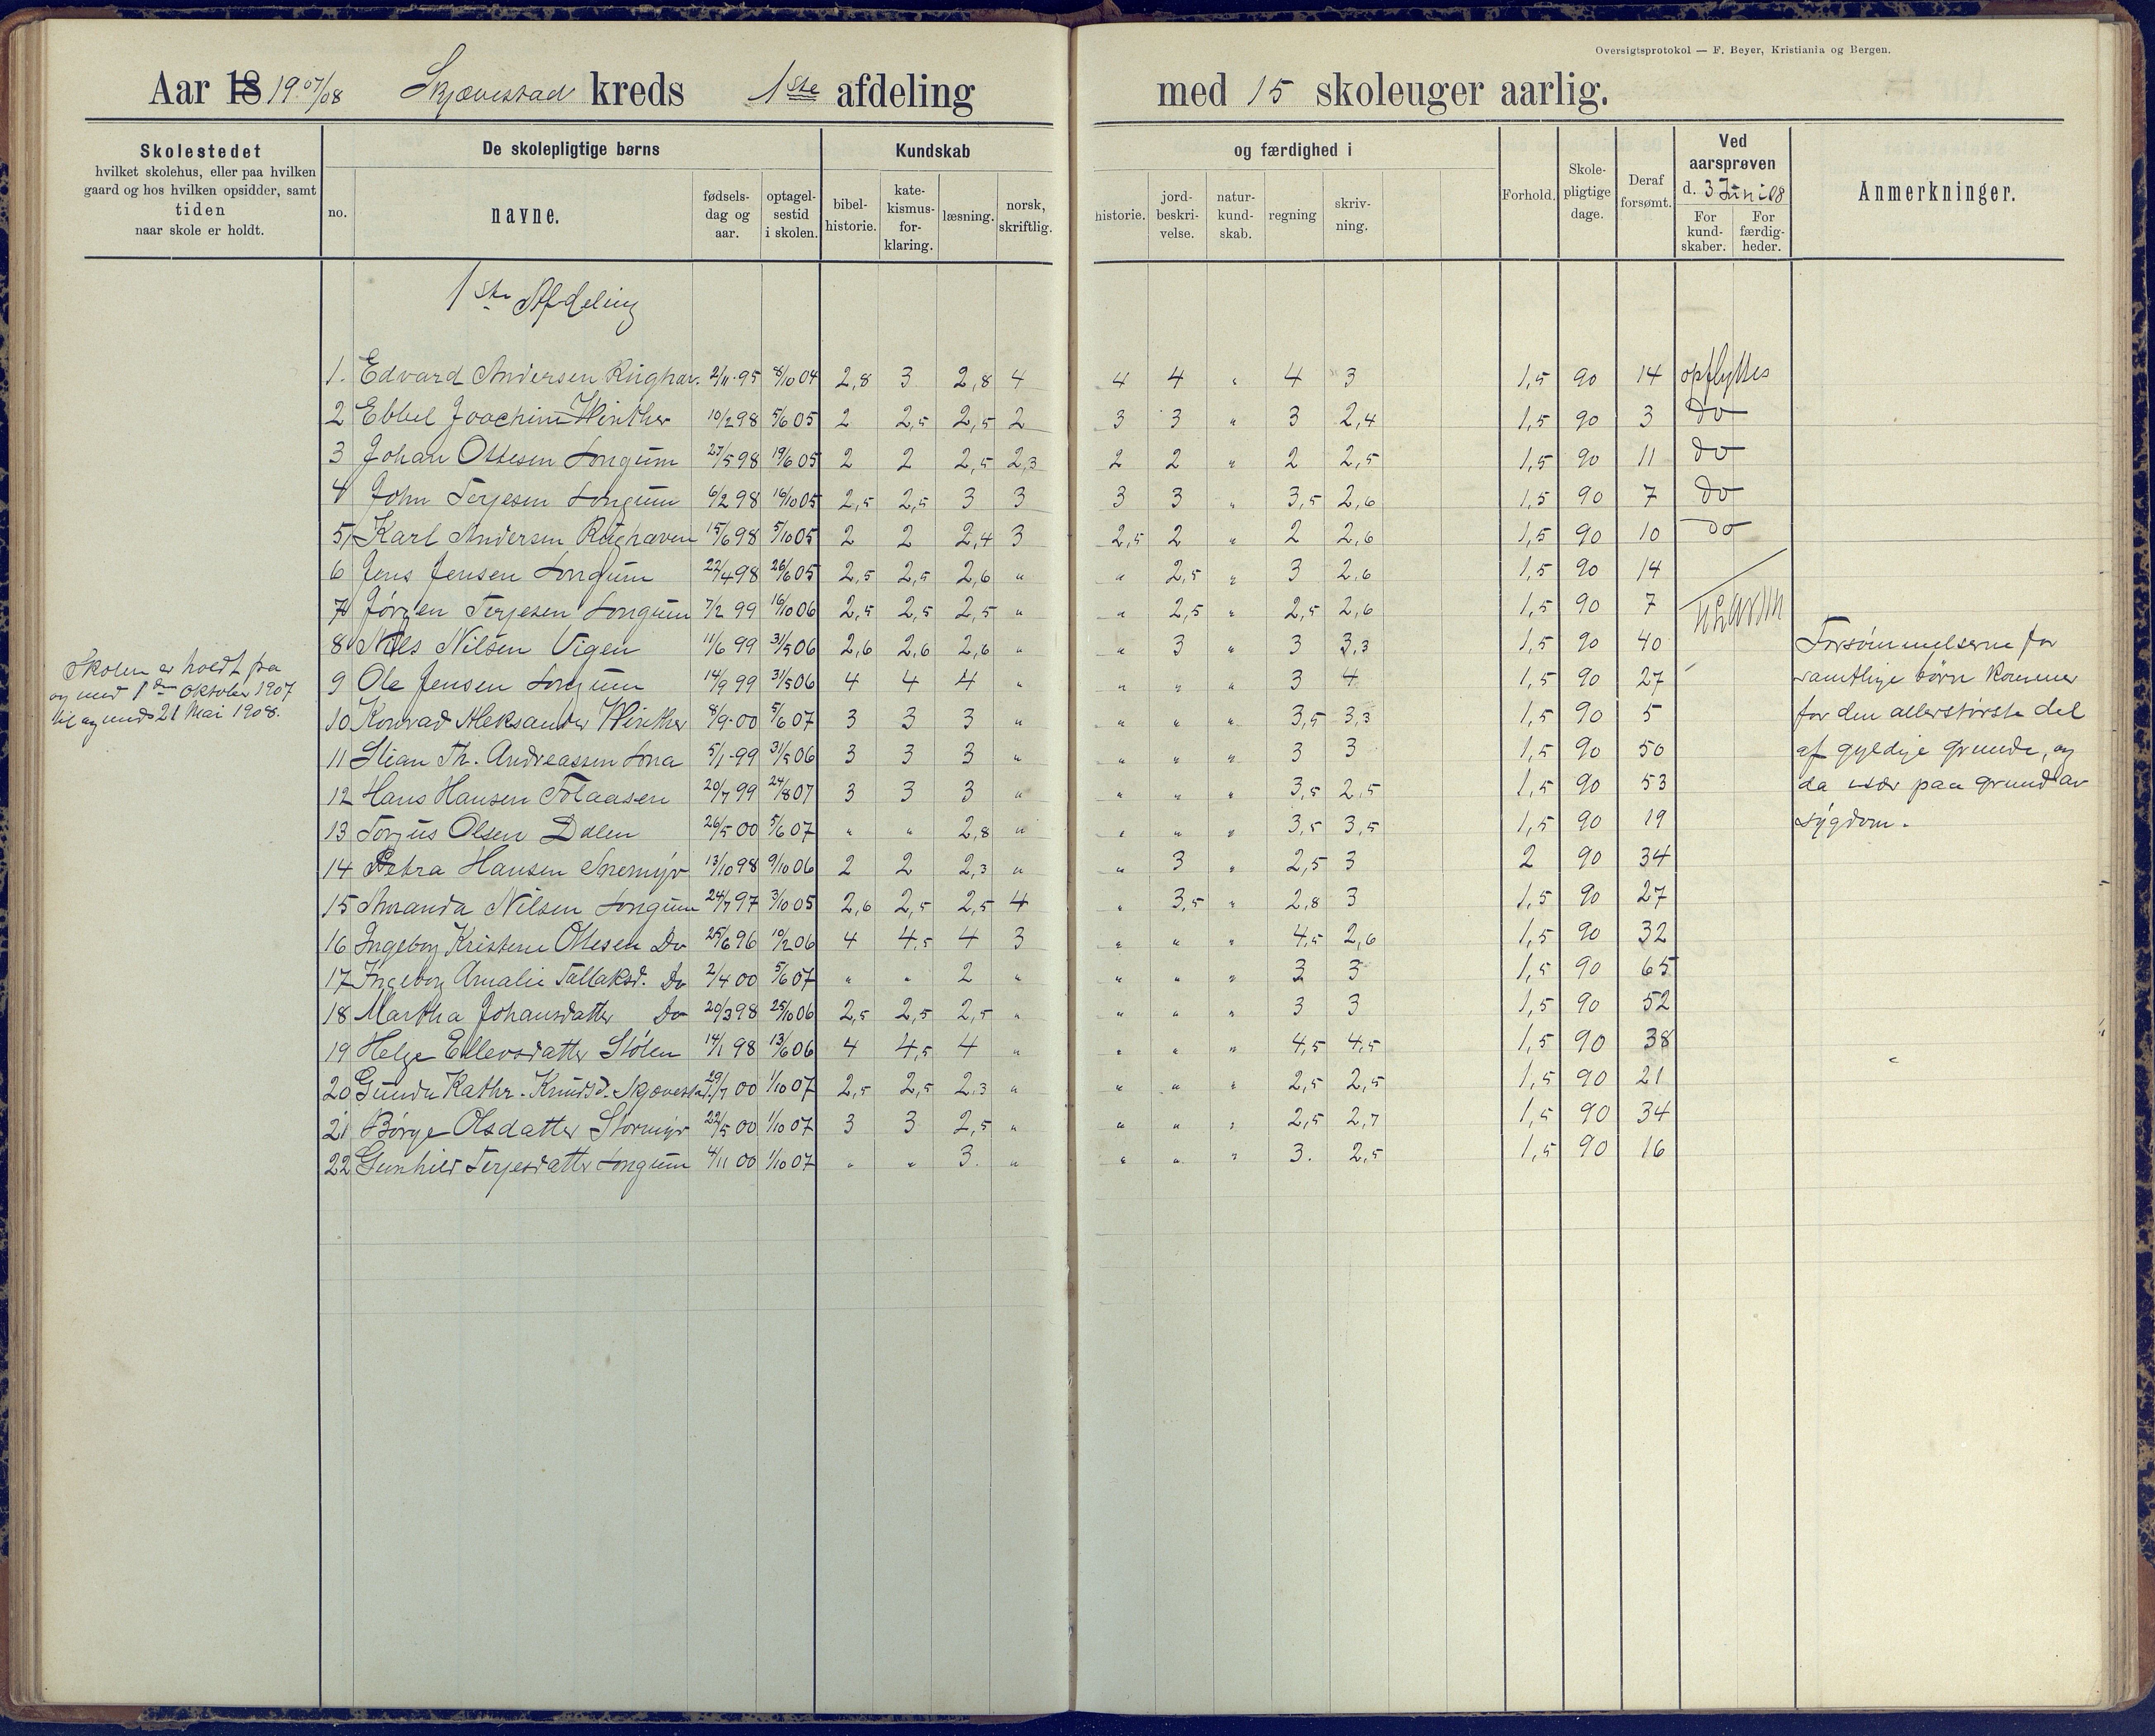 Oversigtsprotokol — F. Beyer, Kristiania og Bergen.
Aar 18 19 07/08 Skjævestad kreds 1ste afdeling med 15 skoleuger aarlig.
Skolestedet hvilket skolehus, eller paa hvilken gaard og hos hvilken opsidder, samt tiden naar skole er holdt.
De skolepligtige børns
no. navne. fødsels-dag og aar. optagel-sestid i skolen.
Kundskab og færdighed i
bibel-historie. kate-kismus-for-klaring. læsning. norsk, skriftlig. historie. jord-beskri-velse. natur-kund-skab. regning skriv-ning.
Forhold. Skole-pligtige dage. Deraf forsømt.
Ved aarsprøven d. 3 Juni 08
For kund-skaber. For færdig-heder.
Anmerkninger.
1ste Afdeling
1. Edvard Andersen Rughav. 2/11-95 8/10 04 2,8 3 2,8 4 4 4 " 4 3 1,5 90 14 opflyttes
2 Ebbel Joachim Winther 10/2 98 5/6 05 2 2,5 2,5 2 3 3 " 3 2,4 1,5 90 3 do
3 Johan Ottesen Longum 27/5 98 19/6 05 2 2 2,5 2,3 2 2 " 2 2,5 1,5 90 11 do
4 John Terjesen Longum 6/2 98 16/10 05 2,5 2,5 3 3 3 3 " 3,5 2,6 1,5 90 7 do
5 Karl Andersen Rughaven 15/6 98 5/10 05 2 2 2,4 3 2,5 2 " 2 2,6 1,5 90 10 do
6 Jens Jensen Longum 22/4 98 26/6 05 2,5 2,5 2,6 " " 2,5 " 3 2,6 1,5 90 14
7 Jørgen Terjesen Longum 7/2 99 16/10 06 2,5 2,5 2,5 " " 2,5 " 2,5 2,6 1,5 90 7
8 Nils Nilsen Vigen 11/6 99 31/5 06 2,6 2,6 2,6 " " 3 " 3 3,3 1,5 90 40
9 Ole Jensen Longum 14/9 99 31/5 06 4 4 4 " " " " 3 4 1,5 90 27
10 Konrad Aleksander Winther 8/9-00 5/6 07 3 3 3 " " " " 3,5 3,3 1,5 90 5
11 Stian Th. Andreassen Lona 5/1-99 31/5 06 3 3 3 " " " " 3 3 1,5 90 50
12 Hans Hansen Folaasen 20/7 99 24/8 07 3 3 3 " " " " 3,5 2,5 1,5 90 53
13 Torjus Olsen Dalen 26/5 00 5/6 07 " " 2,8 " " " " 3,5 3,5 1,5 90 19
14 Petra Hansen Snemyr 13/10 98 9/10 06 2 2 2,3 " " 3 " 2,5 3 2 90 34
15 Amanda Nilsen Longum 24/7 97 3/10 05 2,6 2,5 2,5 4 " 3,5 " 2,8 3 1,5 90 27
16 Ingeborg Kristene Ottesen Do 25/6 96 10/2 06 4 4,5 4 3 " " " 4,5 2,6 1,5 90 32
17 Ingeborg Amalie Tallaksd. Do 2/4 00 5/6 07 " " 2 " " " " 3 3 1,5 90 65
18 Martha Johansdatter Do 20/3 98 25/10 06 2,5 2,5 2,5 " " " " 3 3 1,5 90 52
19 Helge Ellevsdatter Stølen 14/1 98 13/6 06 4 4,5 4 " " " " 4,5 4,5 1,5 90 38
20 Gunda Kathr. Knudsd. Skjævestad 29/7 00 1/10 07 2,5 2,5 2,3 " " " " 2,5 2,5 1,5 90 21
21 Børge Olsdatter Stormyr 22/5 00 1/10 07 3 3 2,5 " " " " 2,5 2,7 1,5 90 34
22 Gunhild Terjesdatter Longum 4/11 00 1/10 07 " " 3. " " " " 3. 2,5 1,5 90 16
Skolen er holdt fra
og med 1ste Oktober 1907
til og med 21 Mai 1908.
Forsømmelserne for
samtlige børn kommer
for den allerstørste del
af gyldige grunde, og
da især paa grund av
sygdom.